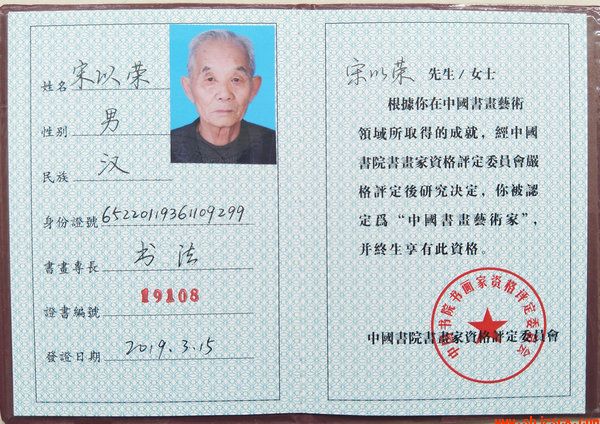 姓名 宋以荣
性别 男
民族 汉
身份證號 652201193611092​99
書畫專長 书法
證書編號 19108
發證日期 2019.3.15
宋以荣 先生/女士
根據你在中國書畫藝術
領域所取得的成就，經中國
書院書畫家資格評定委員會嚴
格評定後研究决定，你被認
定爲“中國書畫藝術家”，
并終生享有此資格。
中國書院書畫家資格評定委員會
中国书院书画家资格评定委员会